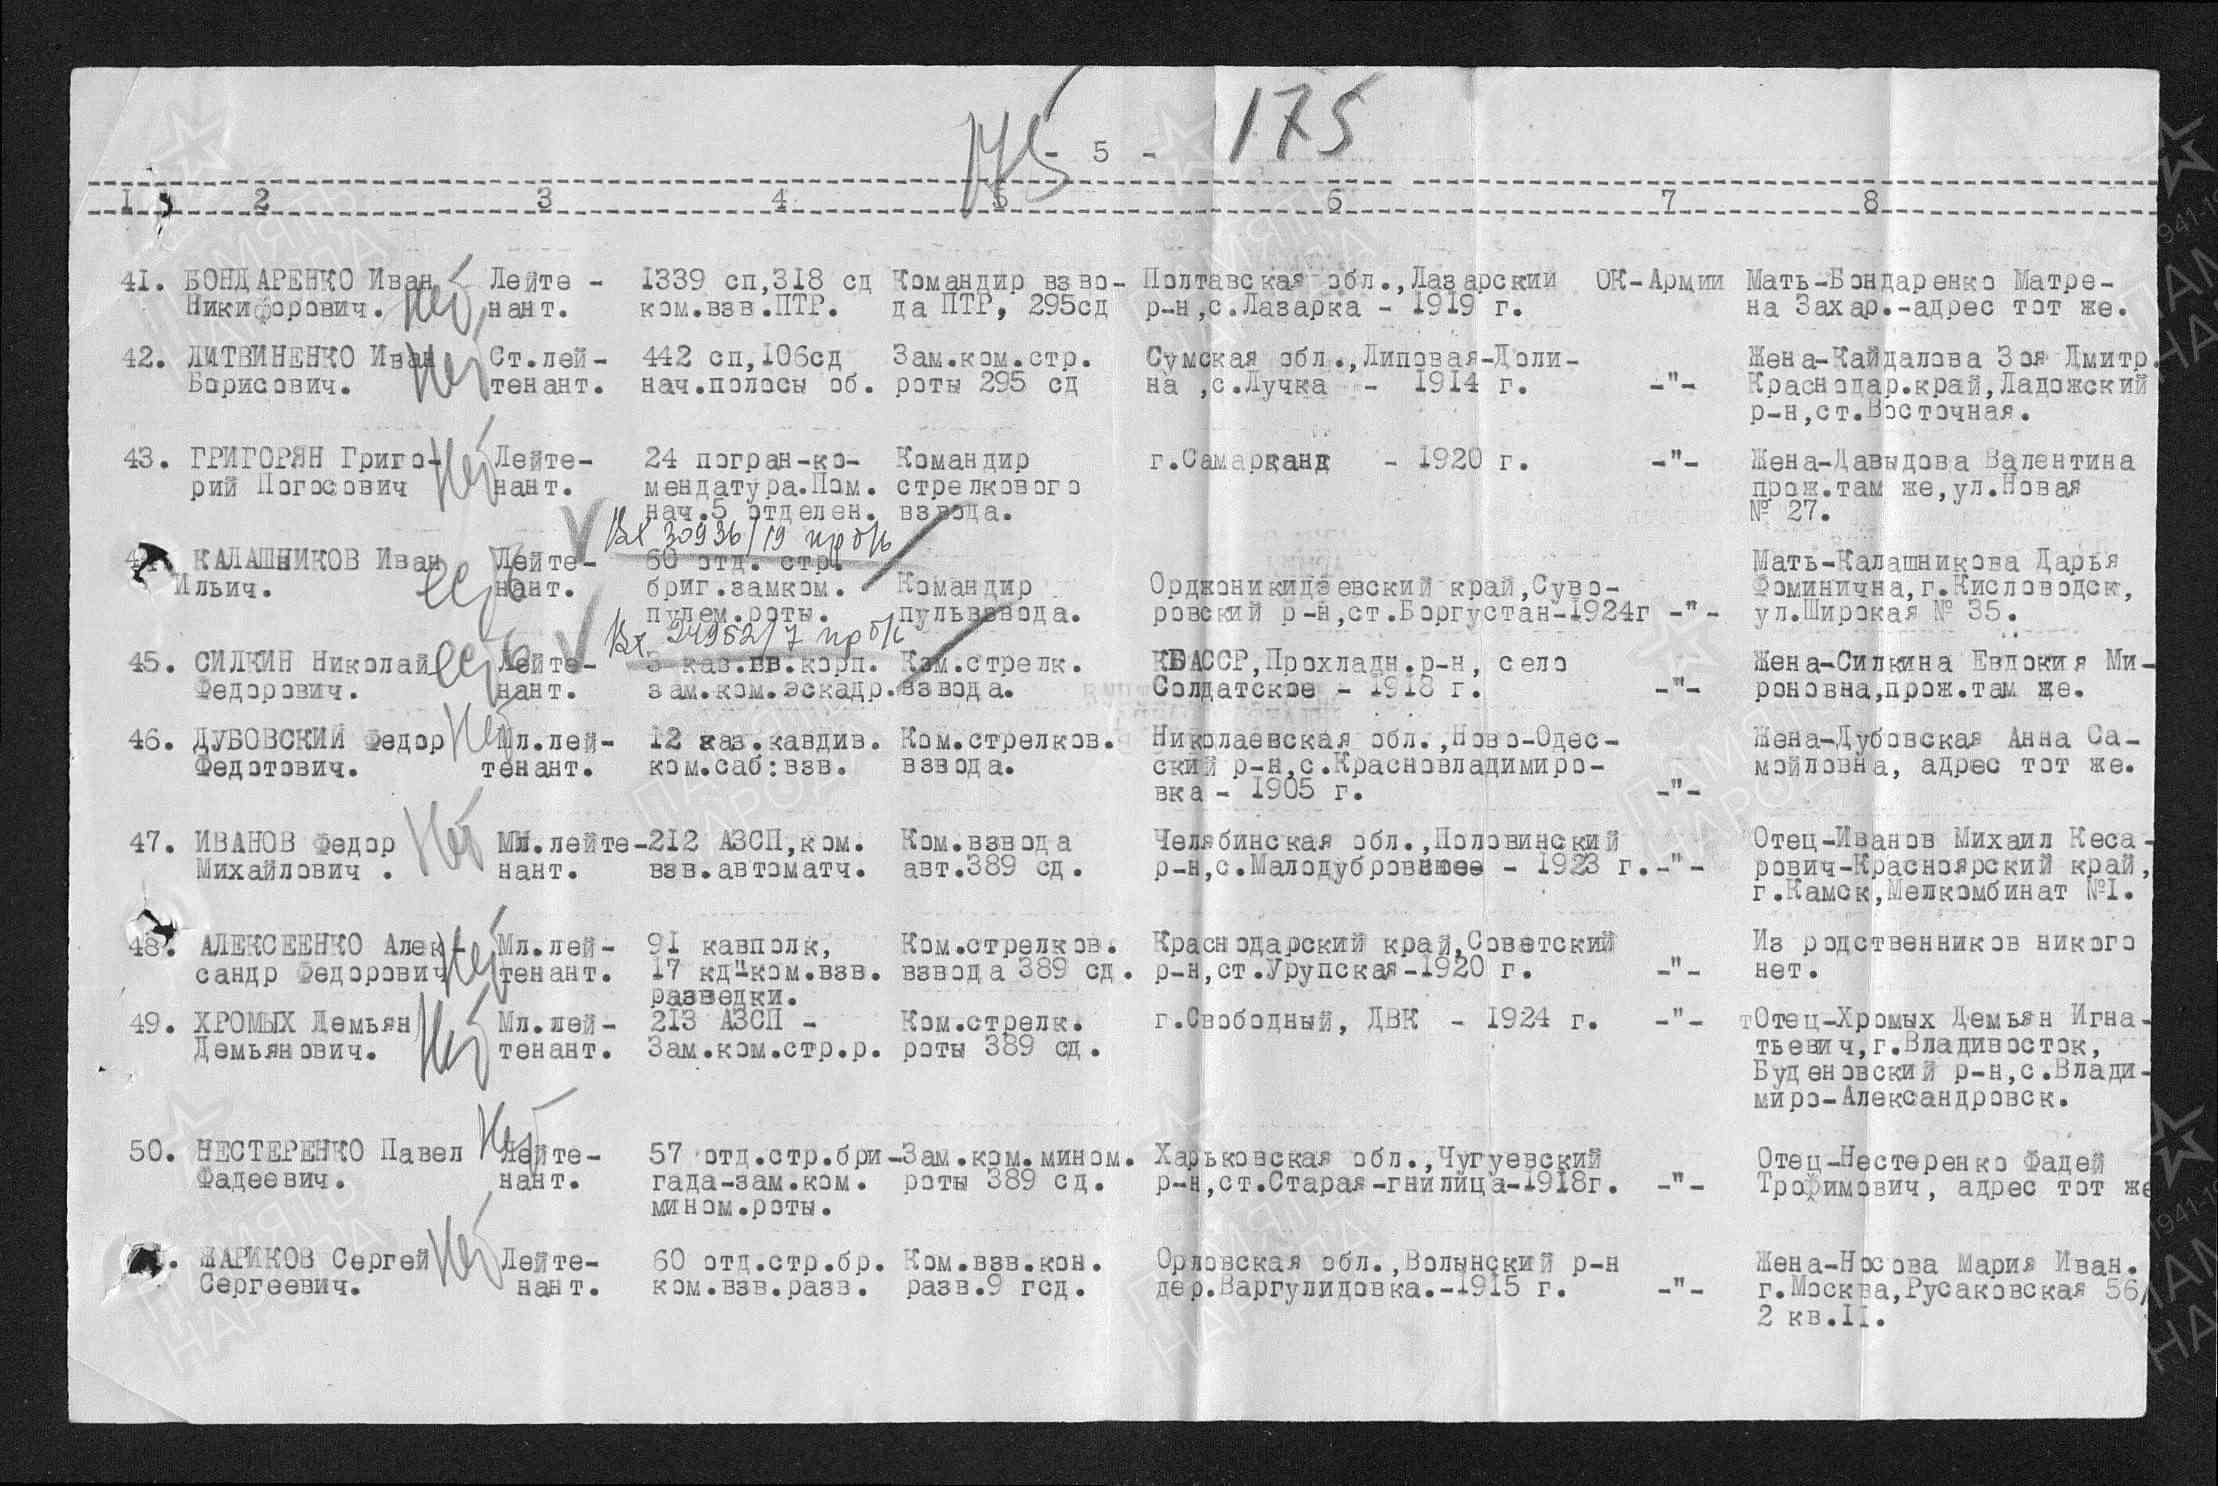 175
- 5 -
175
1 2 3 4 5 6 7 8
41. БОНДАРЕНКО Иван Нет Лейте - 1339 сп,318 сд Командир взво- Полтавская обл.,Лазарский ОК-Армии Мать-Бондаренко Матре-
Никифорович. нант. ком.взв.ПТР. да ПТР, 295сд р-н,с.Лазарка - 1919 г. на Захар.-адрес тот же.
42. ЛИТВИНЕНКО Иван Нет Ст.лей- 442 сп,106сд Зам.ком.стр. Сумская обл.,Липовая-Доли- Жена-Кайдалова Зоя Дмитр.
Борисович. тенант. нач.полосы об. роты 295 сд на ,с.Лучка - 1914 г. -"- Краснодар.край,Ладожский
р-н,ст.Восточная.
43. ГРИГОРЯН Григо- Нет Лейте- 24 погран-ко- Командир г.Самарканд - 1920 г. -"- Жена-Давыдова Валентина
рий Погосович нант. мендатура.Пом. стрелкового прож.там же,ул.Новая
нач.5 отделен. взвода. № 27.
Вх 30936/19 пр б/к
КАЛАШНИКОВ Иван есть Лейте- 60 отд. стр. Мать-Калашникова Дарья
Ильич. нант. бриг.замком. Командир Орджоникидзевский край,Суво- Фоминична,г.Кисловодск,
пулем.роты. пульвзвода. ровский р-н,ст.Боргустан-1924г -"- ул.Широкая № 35.
Вх 24952/7 пр б/к
45. СИЛКИН Николай есть Лейте- 3 каз.кв.корп. Ком.стрелк. КБАССР,Прохладн.р-н, село Жена-Силкина Евдокия Ми-
Федорович. нант. зам.ком.эскадр. взвода. Солдатское - 1918 г. -"- роновна,прож.там же.
46. ДУБОВСКИЙ Федор Нет Мл.лей- 12 каз.кавдив. Ком.стрелков. Николаевская обл.,Ново-Одес- Жена-Дубовская Анна Са-
Федотович. тенант. ком.саб:взв. взвода. ский р-н,с.Красновладимиро- мойловна, адрес тот же.
вка - 1905 г. -"-
47. ИВАНОВ Федор Нет Мл.лейте- 212 АЗСП,ком. Ком.взвода Челябинская обл.,Половинский Отец-Иванов Михаил Кеса-
Михайлович . нант. взв.автоматч. авт.389 сд. р-н,с.Малодубровное - 1923 г. -"- рович-Красноярский край,
г.Камск,Мелкомбинат №1.
48. АЛЕКСЕЕНКО Алек- Нет Мл.лей- 91 кавполк, Ком.стрелков. Краснодарский край,Советский Из родственников никого
сандр Федорович тенант. 17 кд"ком.взв. взвода 389 сд. р-н,ст.Урупская-1920 г. -"- нет.
разведки.
49. ХРОМЫХ Демьян Нет Мл.лей- 213 АЗСП - Ком.стрелк. г.Свободный, ДВК - 1924 г. -"- тОтец-Хромых Демьян Игна-
Демьянович. тенант. Зам.ком.стр.р. роты 389 сд. тьевич,г.Владивосток,
Буденовский р-н,с.Влади-
миро-Александровск.
50. НЕСТЕРЕНКО Павел Нет Лейте- 57 отд.стр.бри- Зам.ком.мином. Харьковская обл.,Чугуевский Отец-Нестеренко Фадей
Фадеевич. нант. гада-зам.ком. роты 389 сд. р-н,ст.Старая-гнилица-1918г. -"- Трофимович, адрес тот же
мином.роты.
ЖАРИКОВ Сергей Нет Лейте- 60 отд.стр.бр. Ком.взв.кон. Орловская обл.,Волынский р-н Жена-Носова Мария Иван.
Сергеевич. нант. ком.взв.разв. разв.9 гсд. дер.Варгулидовка.-1915 г. -"- г.Москва,Русаковская 56/
2 кв.11.